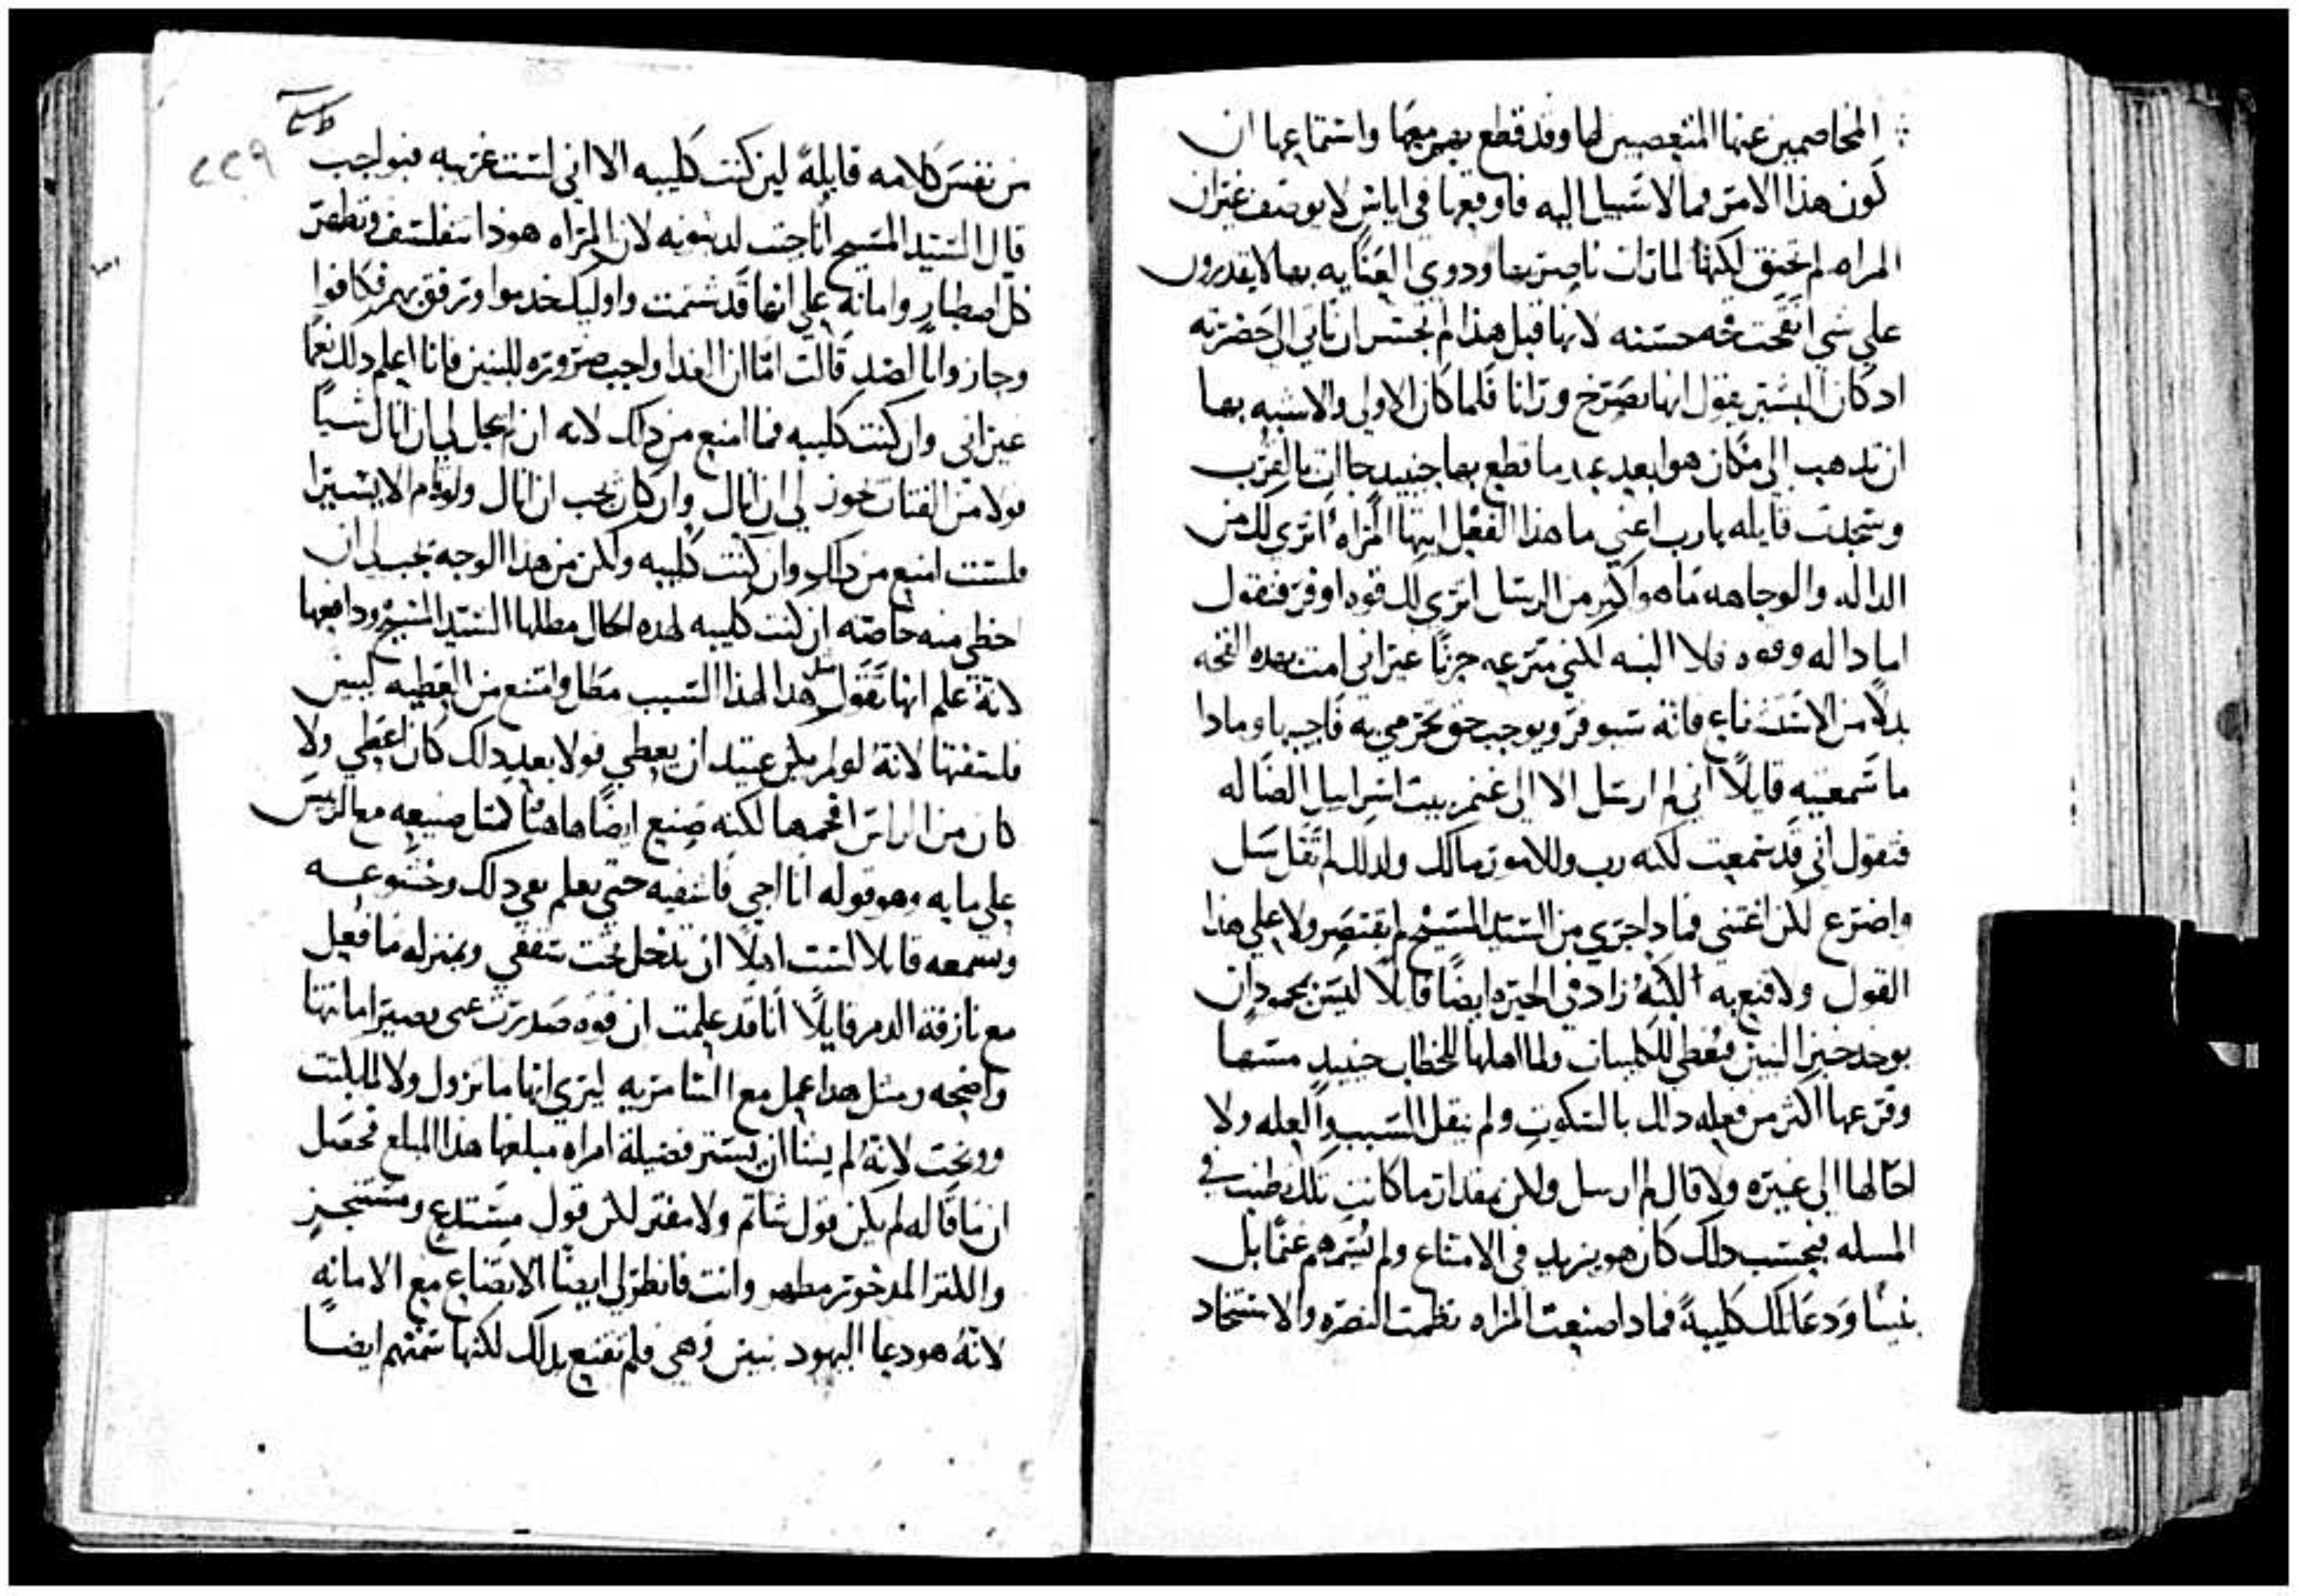 المخاصمين عنها المتعصبين لها وقد قطع بصرميعها واستماعها ان
كون هذا الامر مما لا سبيل اليه فاوقعها في اياس لا يوصف غيران
المراه لم تختنق لكنها لما رات ناصريها ودوي العنايه بها لا يقدرون
علي شي اتقحت قحه حسنه لانها قبل هذا لم تجسر ان تاتي الي حضرته
اد كان البشير يقول انها تصرخ ورانا فلما كان الاولي والاشبه بها
ان تدهب الي مكان هو ابعد عند ما قطع بها حنيد جاات بالقرب
وسجدت قايله يارب اعني ما هذا الفعل ايتها المراه اتري لك من
الداله والوجاهه ما هو اكبر من الرسل اتري لك قوه اوفر فتقول
اما داله وقوه فلا البته لكني مترعه حزنا غيراني امت بهده القحه
بدلا من الاستشناع فانه سيوقر ويوجب حق تحرمي به فاجب يا وما دا
ما سمعتيه قايلا اني لم ارسل الا الي غنم بيت اسراييل الضاله
فتقول اني قد سمعت لكنه رب وللامور مالك ولدلك لم تقل سل
واضرع لكن اغتني فما دا جري من السيد المسيح لم يقتصر ولا علي هذا
القول ولا قنع به لكنه زاد في الحيره ايضا قايلا ليس بمحمود ان
يوخد خبز البنين فيعطي للكلبان ولما اهلها للخطاب حنيد مسها
وقرعها اكثر من فعله داك بالسكوت ولم ينقل السبب والعله ولا
احالها الي غيره ولا قال لم ارسل ولكن بمقدار ما كانت تلك طنبت في
المسله فبحسب دلك كان هو يزيد في الامتناع ولم يسمهم غنما بل
بنينا ودعا تلك كليبة فما دا صنعت المراه نظمت النصره والاستنجاد
٢٢٩
من نفس كلامه قايلة لين كنت كليبه الا اني لست غريبه فبواجب
قال السيد المسيح انا جيت لدينونه لان المراه هودا تتفلسف وتظهر
كل اصطبار وامانه علي انها قد شتمت واوليك خدموا وترفق بهم فكافوا
وجازوا بالضد قالت اما ان الغدا واجب ضروره للبنين فانا اعلم دلك نعما
غيراني وان كنت كليبه فما امنع من داك لانه ان لم يحل لي ان انال شيا
فولا من الفتات يجوز لي ان انال وان كان يجب ان انال ولو قام الا يسيرا
فلست امنع من داك وان كنت كليبه ولكن من هذا الوجه يجب لي ان
احظي منه خاصه ان كنت كليبه لهده الحال مطلها السيد المسيح ودافعها
لانه علم انها تقول مثل هدا لهذا السبب مطل وامتنع من العطيه ليبين
فلسفتها لانه لو لم يكن عتيد ان يعطي فولا بعد دلك كان اعطي ولا
كان من الراس افحمها لكنه صنع ايضا هاهنا كمثل صنيعه مع الريس
علي مايه وهو قوله انا اجي فاشفيه حتي يعلم بعي دلك وخشوعه
وتسمعه قايلا لست اهلا ان تدخل تحت سقفي وبمنزله ما فعل
مع نازفة الدم قايلا انا قد علمت ان قوه صدرت عني بصير امانتها
واضحه ومثل هدا عمل مع السامريه ليري انها ما تزول ولا لما بكتت
ووبخت لانه لم يشا ان يستتر فضيلة امراه مبلغها هذا المبلغ فحصل
ان ما قاله لم يكن قول شاتم ولا مفتر لكن قول مستدع ومستنجز
والكنز المدخور مظهر وانت فانظر لي ايضا الاتضاع مع الامانه
لانه هو دعا اليهود بنين وهي فلم تقنع بدلك لكنها سمتهم ايضا